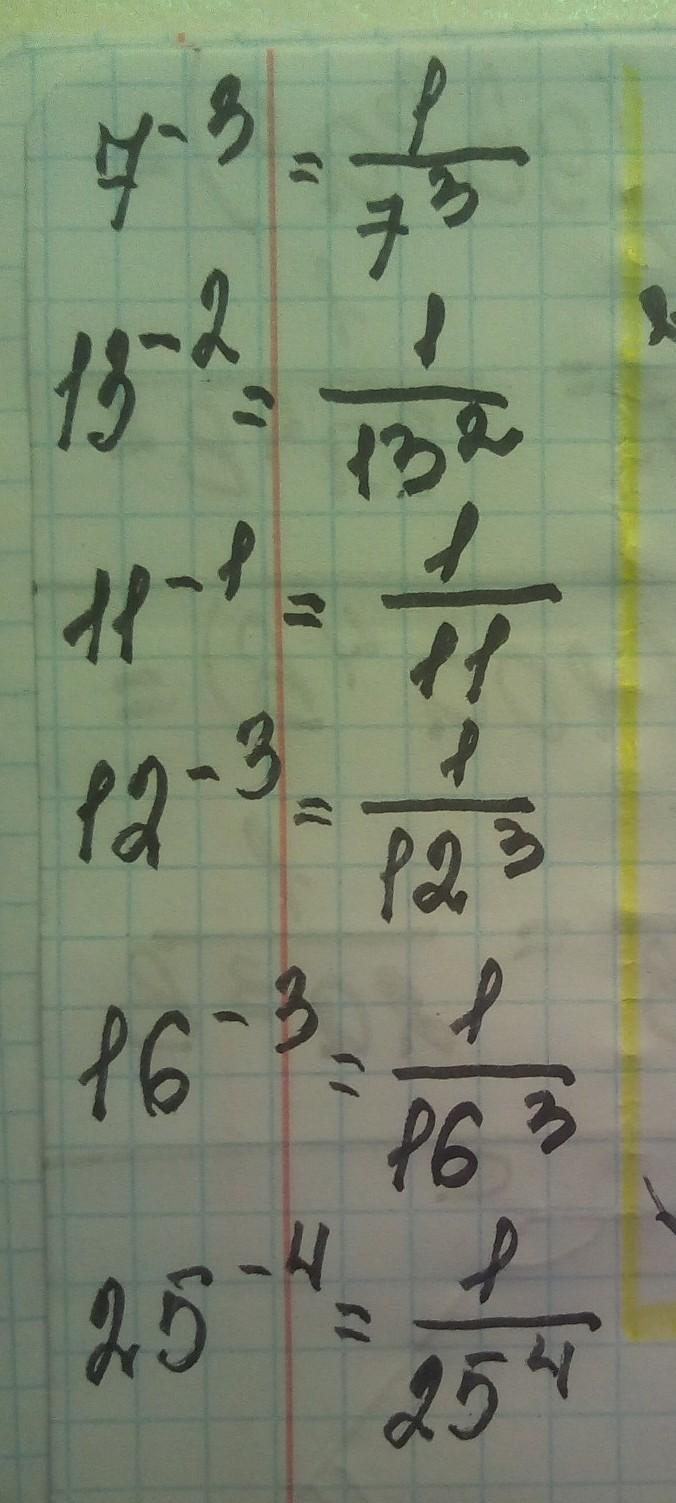 7^-3 = 1/7^3
13^-2 = 1/13^2
11^-1 = 1/11
12^-3 = 1/12^3
16^-3 = 1/16^3
25^-4 = 1/25^4